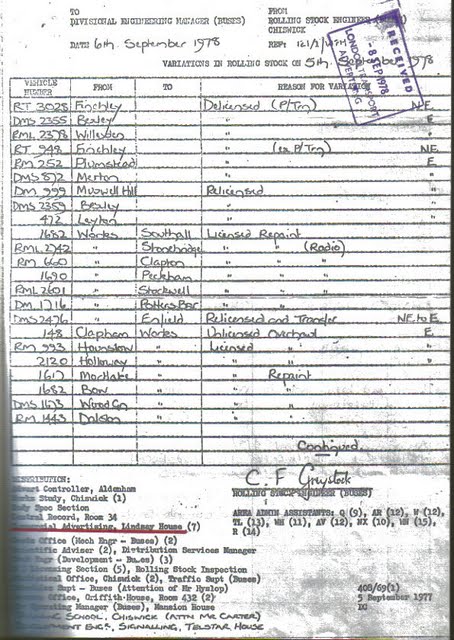 TO FROM
DIVISIONAL ENGINEERING MANAGER (BUSES) ROLLING STOCK ENGINEER
CHISWICK
DATE 6th September 1978 REF: 121/2/
VARIATIONS IN ROLLING STOCK ON 5th September 1978
RECEIVED
- 8 SEP 1978
LONDON TRANSPORT
ADVERTISING
VEHICLE NUMBER FROM TO REASON FOR VARIATION
RT 3028 Finchley Delicensed (P/Trg) N.E.
DMS 2355 Bexley " E
RML 2378 Willesden " "
RT 948 Finchley " (ex P/Trg) N.E.
RM 252 Plumstead " E
DMS 872 Merton " "
DM 999 Muswell Hill Relicensed "
DMS 2359 Bexley " "
472 Leyton " "
1682 Works Southall Licensed Repaint
RML 2742 " Stonebridge " " (Radio)
RM 660 " Clapton " "
1690 " Peckham " "
RML 2601 " Stockwell " "
DM 1716 " Potters Bar " "
DMS 2476 " Enfield Relicensed and Transfer N.E. to E.
148 Clapham Works Unlicensed Overhaul E
RM 993 Hounslow " Licensed " "
2120 Holloway " " "
1617 Mortlake " " Repaint
1682 Bow " " "
DMS 1673 Wood Gn " " "
RM 1443 Dalston " " "
Continued.
C. F Graystock
ROLLING STOCK ENGINEER (BUSES)
DISTRIBUTION:
Stewart Controller, Aldenham
Works Study, Chiswick (1)
Body Spec Section
Central Record, Room 34
Commercial Advertising, Lindsay House (7)
Office (Mech Engr - Buses) (2)
Scientific Adviser (2), Distribution Services Manager
Engr (Development - Buses) (3)
Licensing Section (5), Rolling Stock Inspection
Office, Chiswick (2), Traffic Supt (Buses)
Supt - Buses (Attention of Mr Hyslop)
Office, Griffith House, Room 432 (2)
Operating Manager (Buses), Mansion House
SCHOOL, CHISWICK (ATTN MR CARTER)
ENGR, SIGNALLING, TELSTAR HOUSE
AREA ADMIN ASSISTANTS: Q (9), AR (12), W (12),
TL (13), WH (11), AV (12), NX (10), WN (15),
R (14)
400/69(1)
5 September 1977